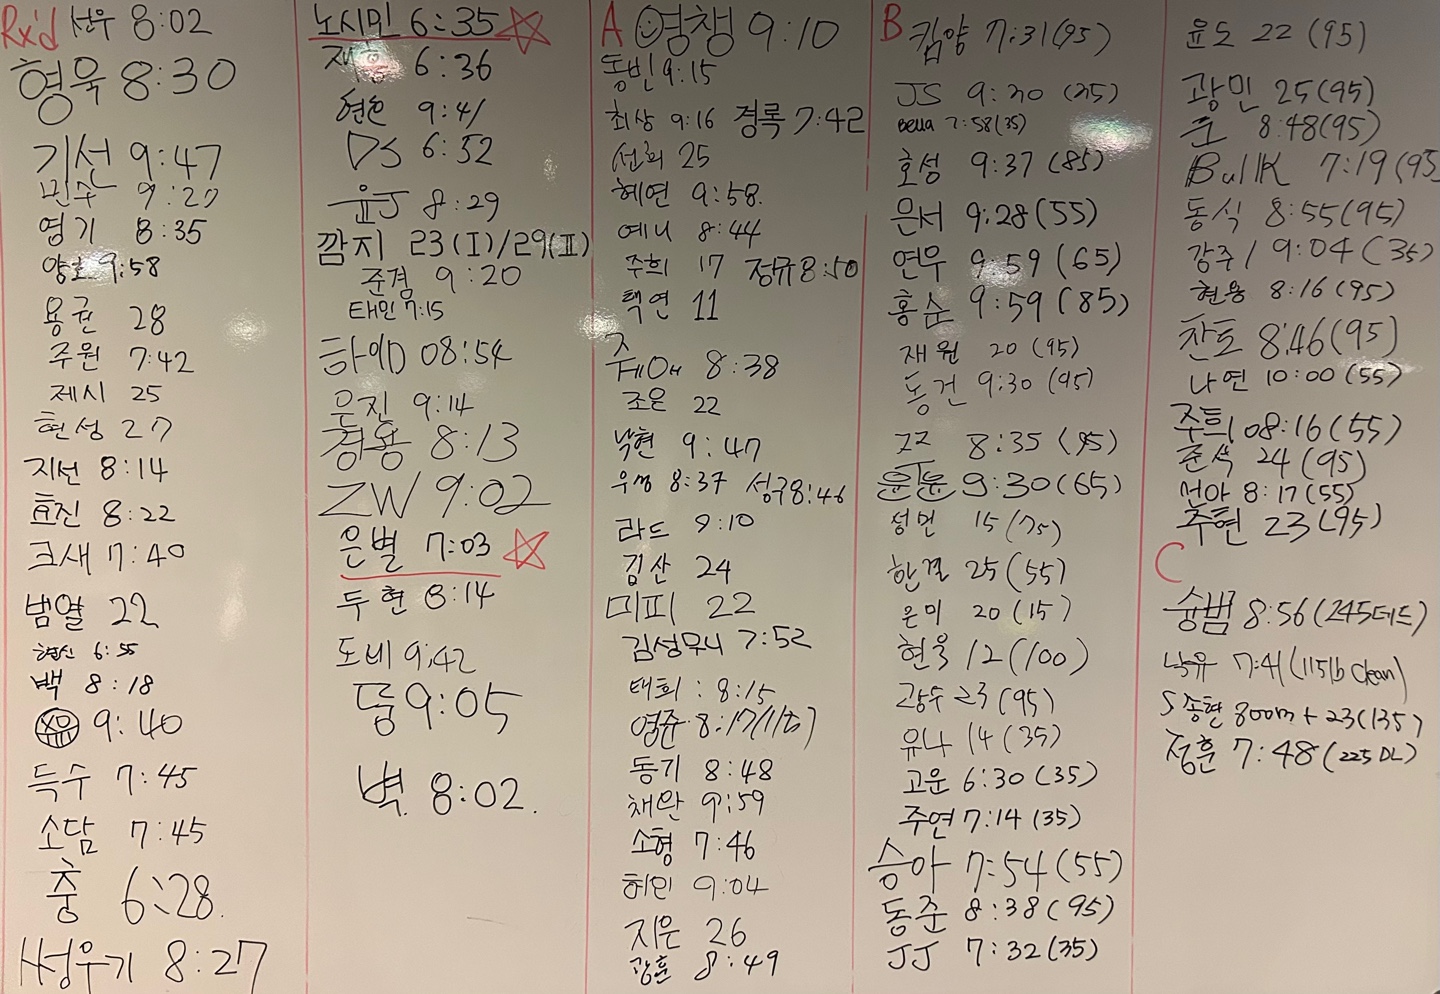 Rx'd 선우 8:02
형욱 8:30
기선 9:47
민수 9:27
영기 8:35
양호 9:58
용권 28
주원 7:42
제시 25
현성 27
지선 8:14
효진 8:22
크새 7:40
범열 22
6:55
백 8:18
9:40
득수 7:45
소담 7:45
충 6:28
써우기 8:27
노시민 6:35
재홍 6:36
9:41
DS 6:52
윤J 8:29
깜지 23(I)/29(II)
준경 9:20
태민 7:15
08:54
은진 9:14
경용 8:13
ZW 9:02
은별 7:03
두현 8:14
도비 9:42
둠 9:05
벽 8:02.
A 영챙 9:10
동빈 9:15
최상 9:16 경록 7:42
선회 25
혜연 9:58.
예니 8:44
주희 17 정규 8:50
택연 11
8:38
조은 22
낙현 9:47
우성 8:37 성구 8:46
라드 9:10
김산 24
미피 22
김성우니 7:52
태희 : 8:15
영준 8:17
동기 8:48
채완 9:59
소형 7:46
허인 9:04
지은 26
광훈 8:49
B 킴양 7:31(95)
JS 9:30 (35)
Bella 7:58(35)
호성 9:37 (85)
은서 9:28(55)
연우 9:59 (65)
홍순 9:59 (85)
재원 20 (95)
동건 9:30 (95)
ZZ 8:35 (95)
윤윤 9:30(65)
성민 15(75)
한결 25(55)
은미 20(15)
현욱 12(100)
광수 23(95)
유나 14(35)
고운 6:30 (35)
주연 7:14 (35)
승아 7:54(55)
동준 8:38(95)
JJ 7:32(35)
윤도 22 (95)
광민 25(95)
준 8:48(95)
BulK 7:19(95)
동식 8:55(95)
강주1 9:04(35)
현용 8:16(95)
찬토 8:46(95)
나연 10:00(55)
주희 08:16(55)
준석 24(95)
선아 8:17(55)
주현 23(95)
C
슝범 8:56(245데드)
낙유 7:41(115lb clean)
S종현 800m + 23(135)
정훈 7:48(225 DL)